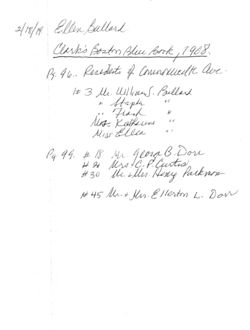 2/18/19 Ellen Bullard
Clark's Boston Blue Book, 1908.
Pg 96. Residents of Commonwealth Ave.
# 3 Mr. William S. Bullard
" Steph "
" Frank "
Miss Katherine "
Miss Ellen "
Pg 99. # 18 Mr. George B. Dorr
# Mrs. C. P. Curtis
# 30 Mr. & Mrs. Henry Parkman
# 45 Mr. & Mrs. Ellerton L. Dorr